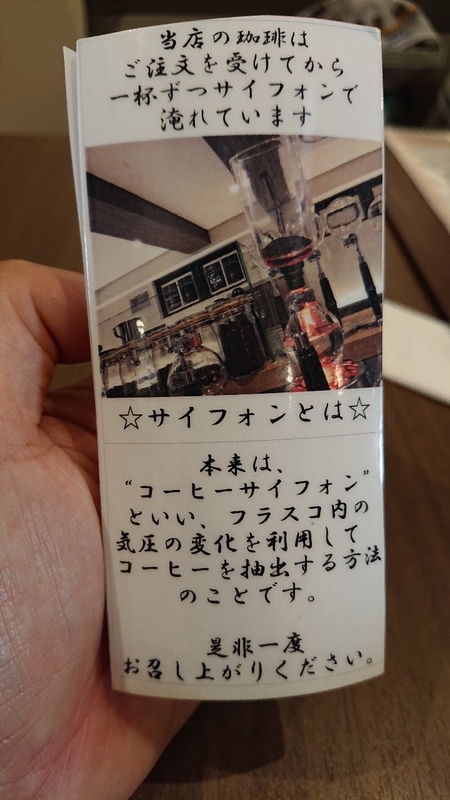 当店の珈琲は
ご注文を受けてから
一杯ずつサイフォンで
淹れています
☆サイフォンとは☆
本来は、
“コーヒーサイフォン”
といい、フラスコ内の
気圧の変化を利用して
コーヒーを抽出する方法
のことです。
是非一度
お召し上がりください。